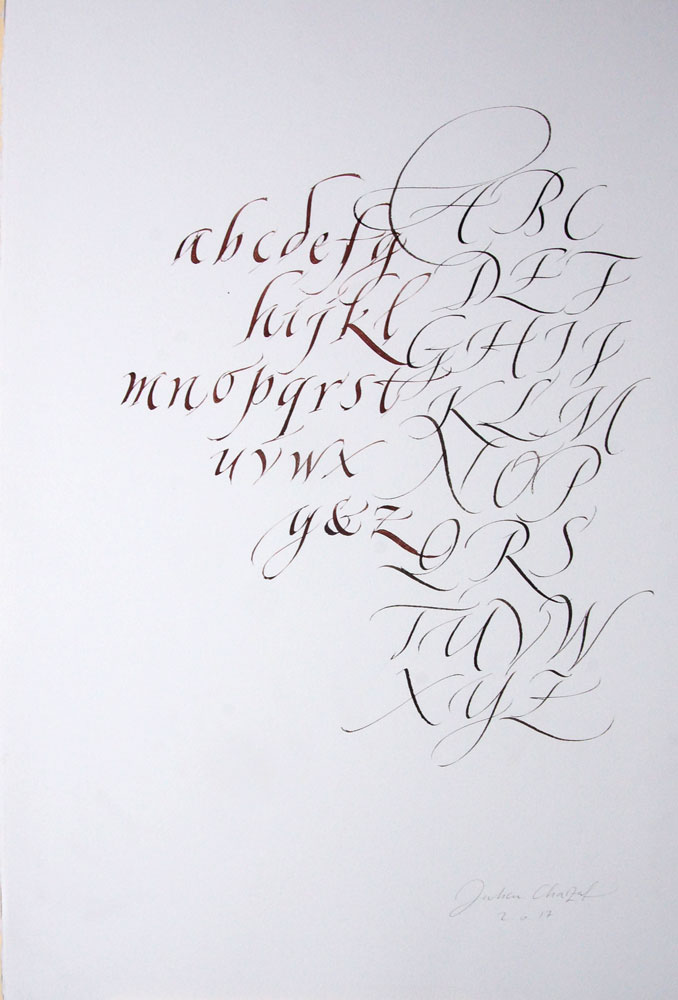 abcdefg
hijkl
mnopqrst
uvwx
y&z
ABC
DEF
GHIJ
KLM
NOP
QRS
TUVW
XYZ
Julien Chazal
2017